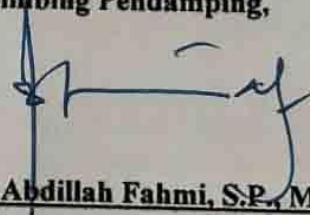 mbing Pendamping,
Abdillah Fahmi, S.P., M